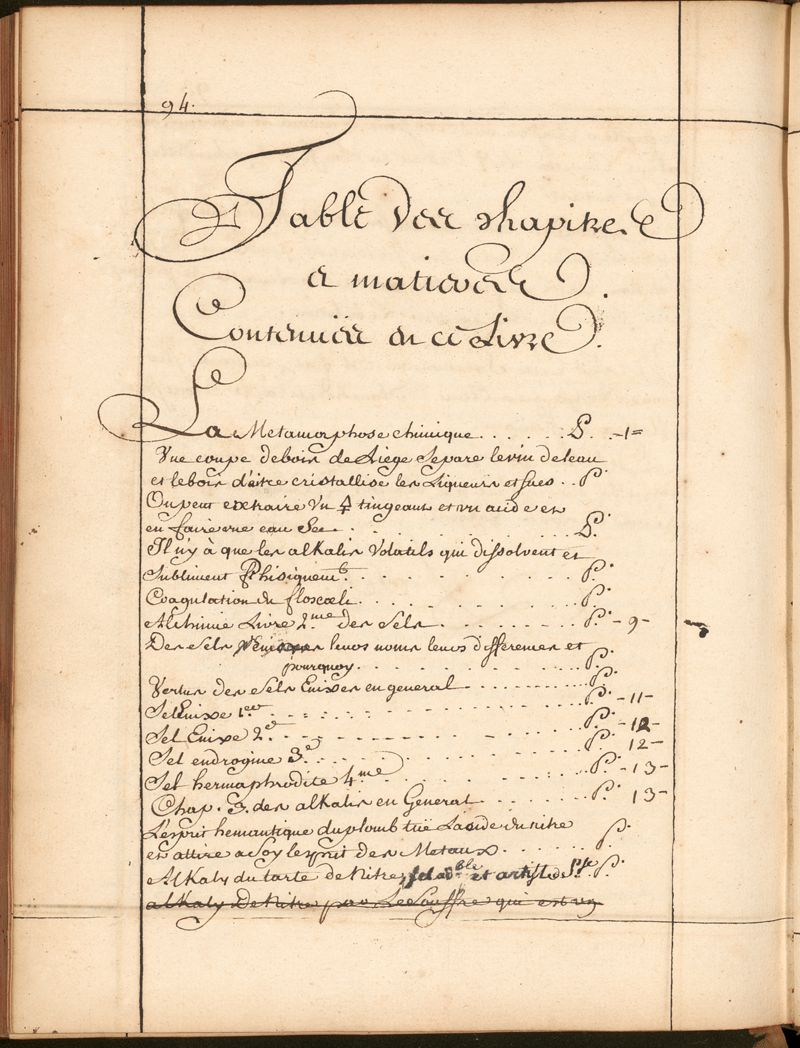 94.
Table Des Chapitres
et matieres
Contenües en ce Livre.
La Metamorphose chimique . . . . . . P. -1=
Une coupe de bois de Liege Separe le vin de leau
et le bois d'aitre cristallise les Liqueurs et sucs . . P.
On peut extraire Un 🜍 tingeant et un acide et
en faire une eau See . . . . . . . P.
Il n'y à que les alkalis Volatils qui dissolvent et
subliment Phisiquemt. . . . . . . . P.
Coagulation du floscœli . . . . . . . P.
Alchimie Livre 2.me des Sels . . . . . P. - 9 -
Des Sels Enixes leurs noms leurs differences et
pourquoy . . . . . . . . P.
Vertus des Sels Enixes en general . . . . . . P.
Sel Enixe 1.er . . . . . . . . P. - 11 -
Sel Enixe 2.e . . . . . . . . P. - 12 -
Sel endrogine 3.e . . . . . . . P. 12 -
Sel hermaphrodite 4.me . . . . . . P. - 13 -
Chap. 3. des alkalis en General . . . . . . P. 13 -
L'esprit hemantique du plomb tüe L'acide du nitre
et attire a Soy lesprit des Metaux . . . . . . P.
Alkaly du tartre de Nitre, et P.
alkaly De Nitre par Le Souffre qui est un